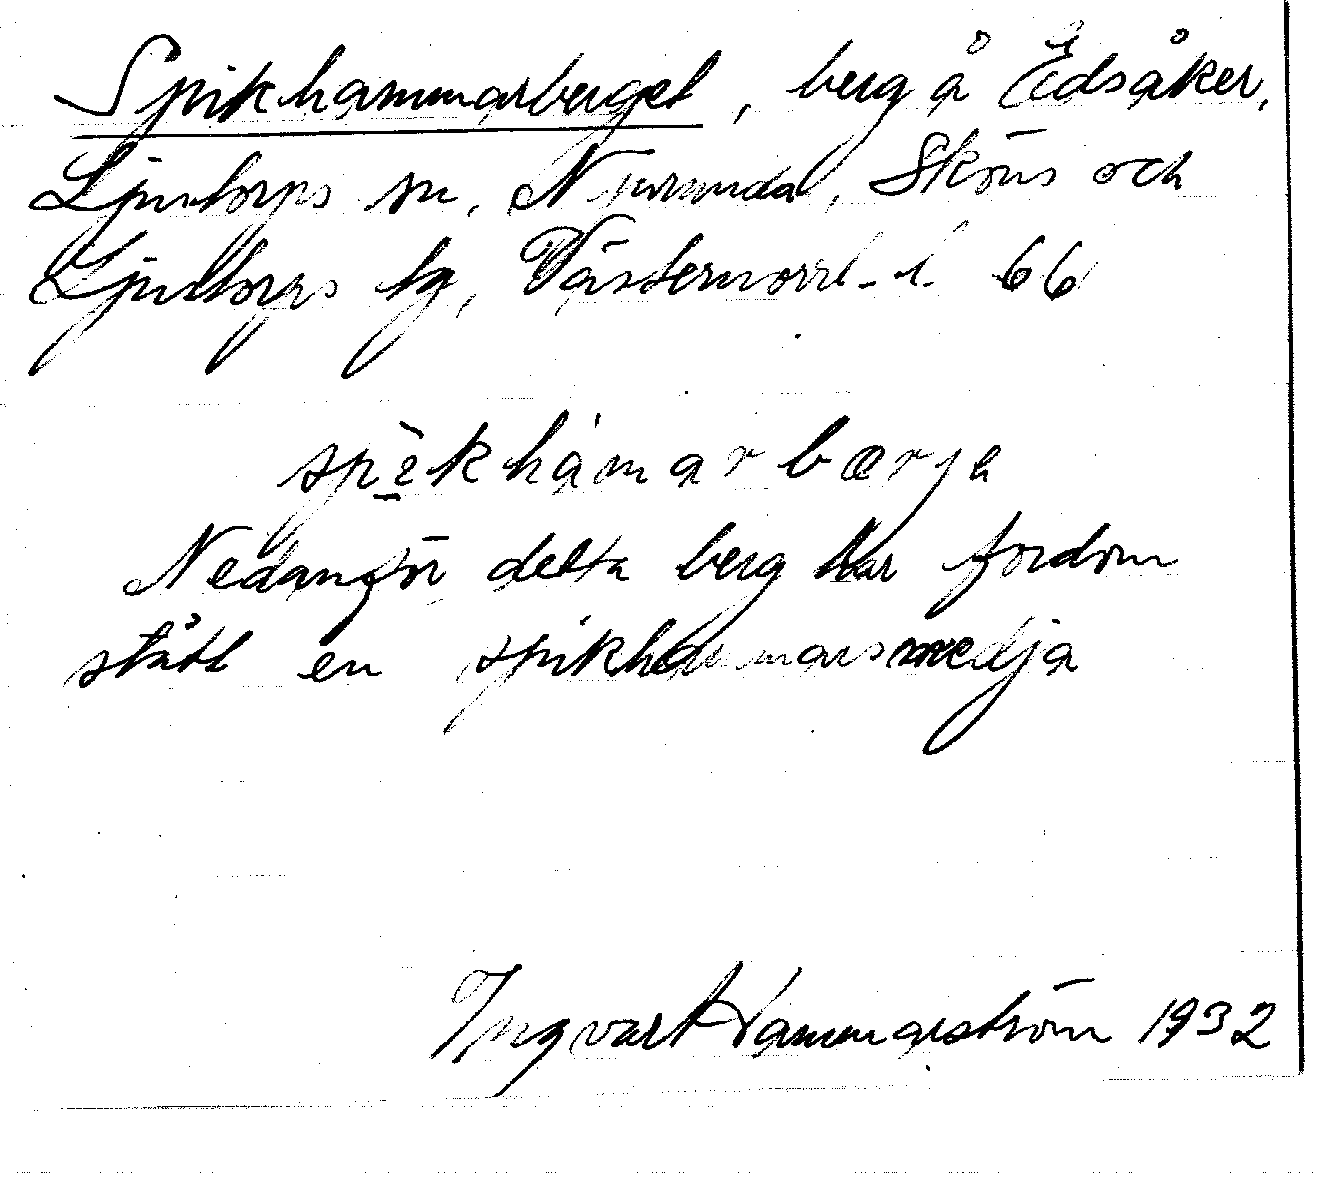 Spikhammarberget, berg å Edsåker,
Ljustorps sn, Njurunda, Sköns och
Ljustorps tg, Västernorrl. l. 66
spìkhàmarbærja
Nedanför detta berg har fordom
stått en spikhammarsmedja
Ingvart Hammarström 1932